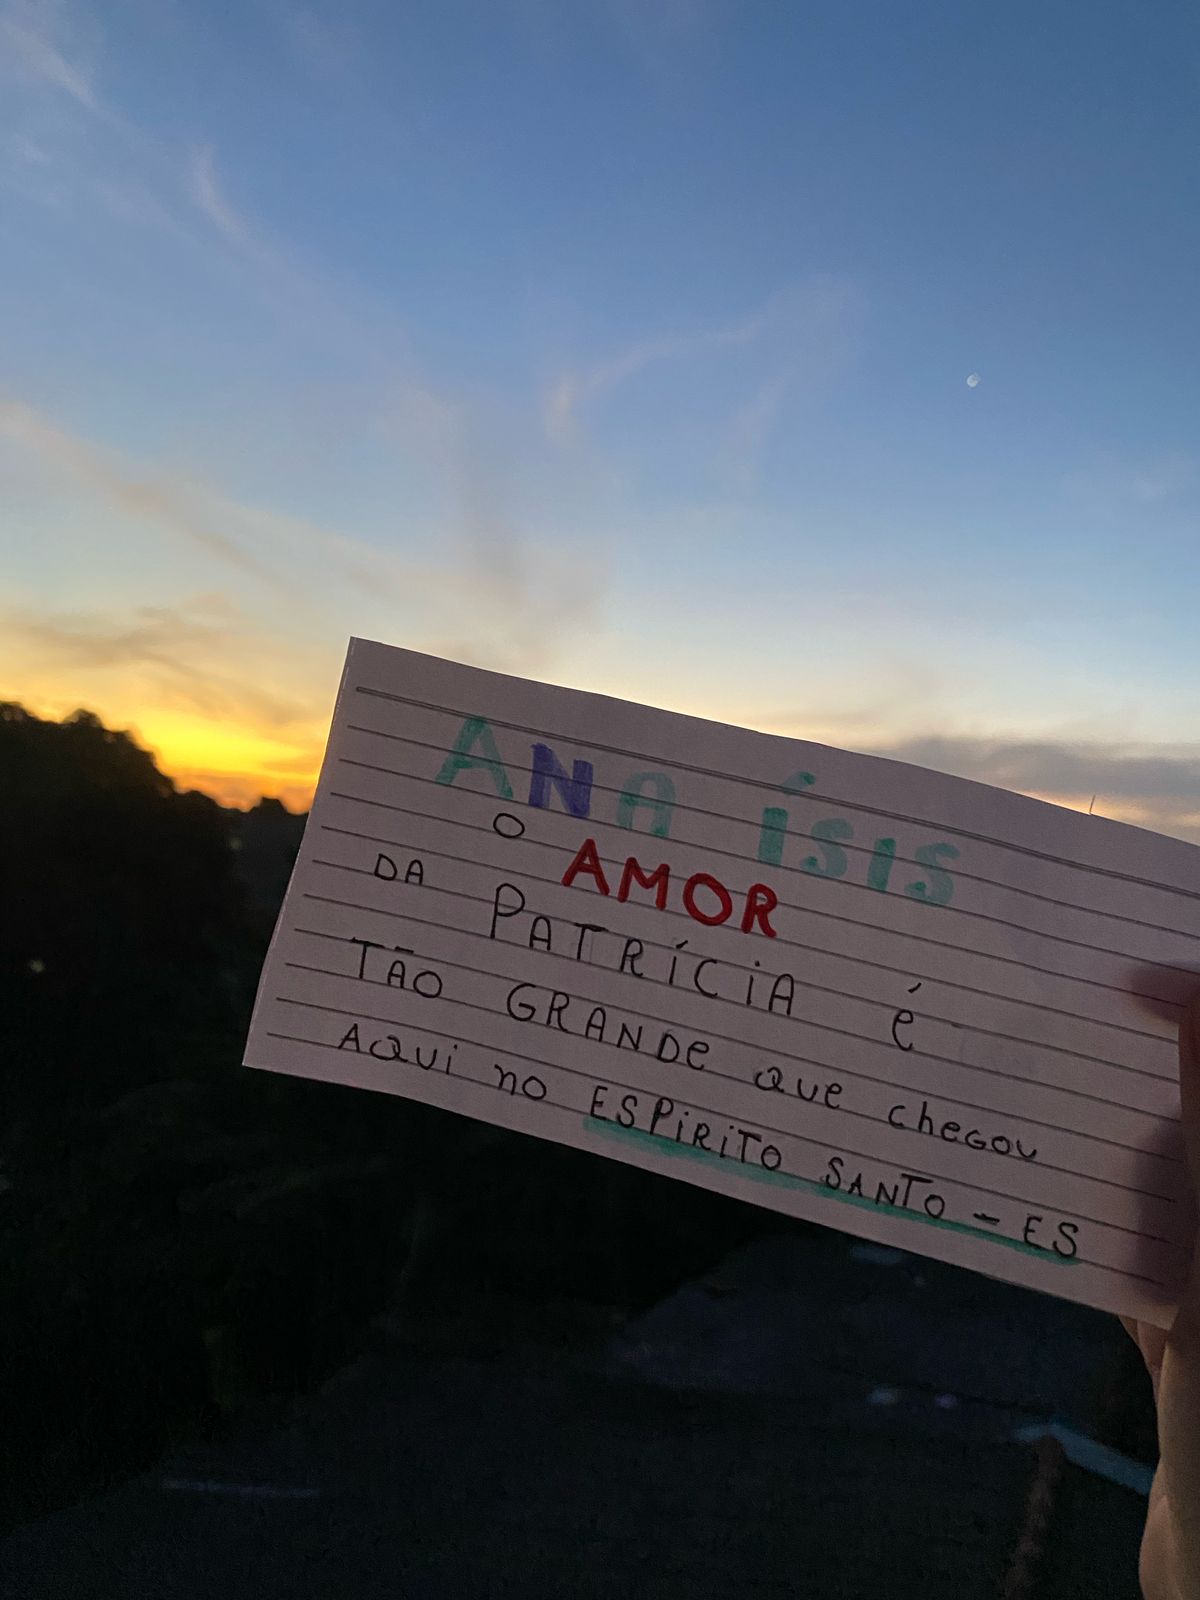 ANA ÍSIS
O AMOR
DA PATRÍCIA é
TÃO GRANDe que chegou
AQui no ESPiRiTO SANTO - ES